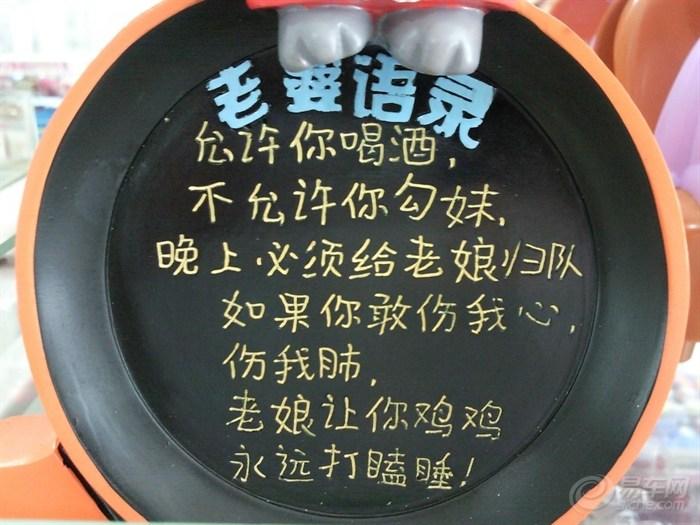 老婆语录
允许你喝酒,
不允许你勾妹,
晚上必须给老娘归队
如果你敢伤我心,
伤我肺,
老娘让你鸡鸡
永远打瞌睡!
易车网